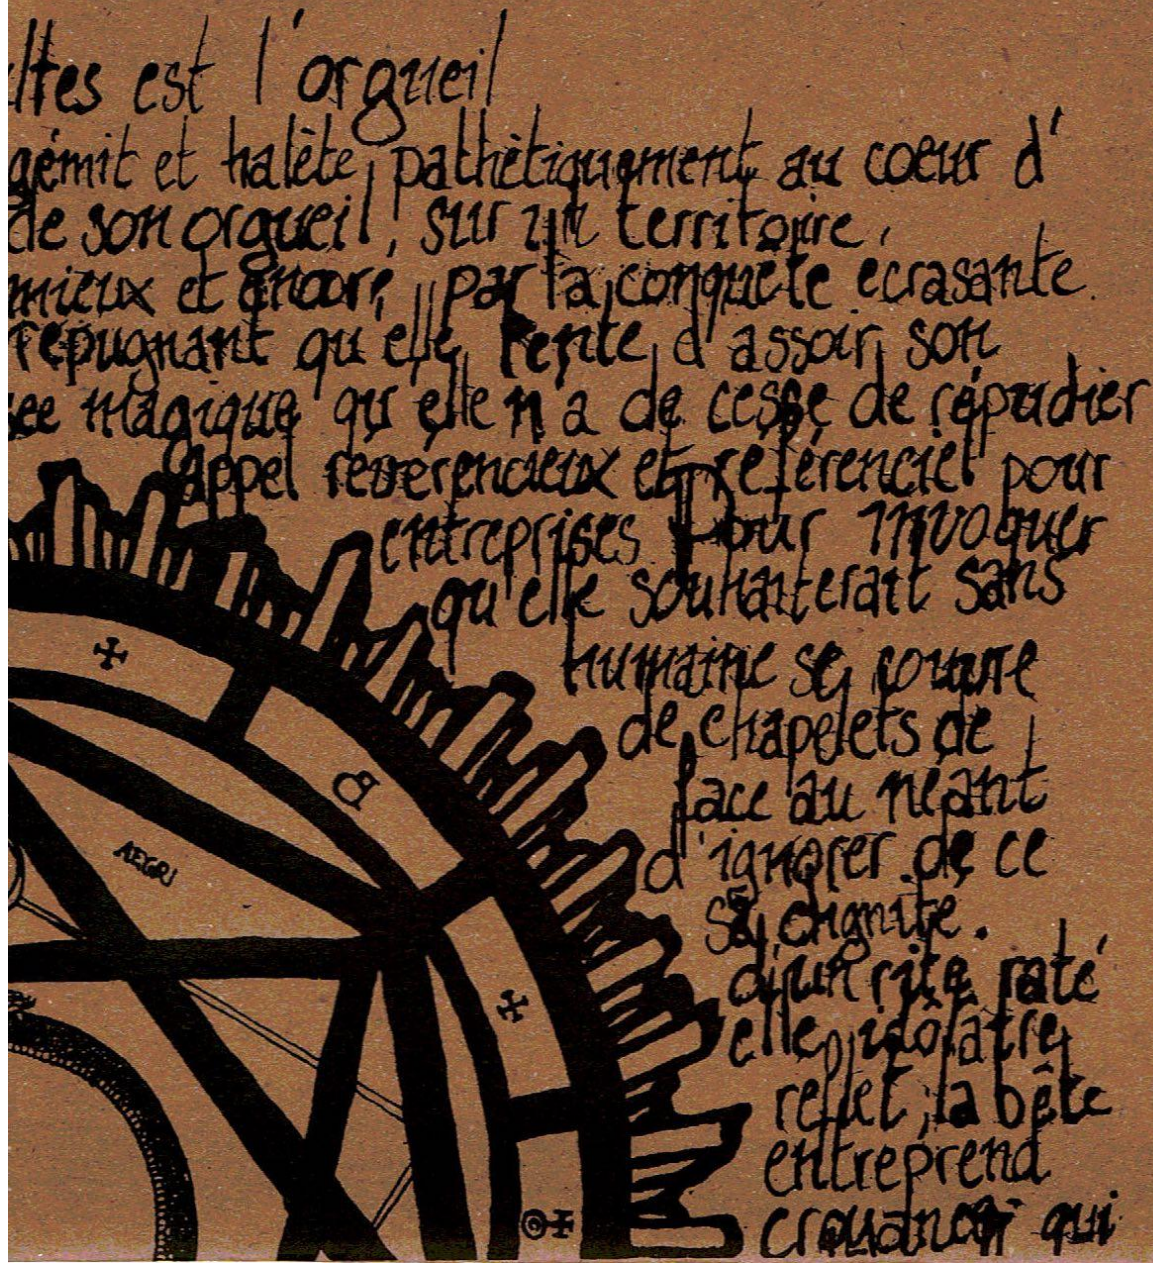 ltes est l'orgueil
gémit et halète, pathétiquement au coeur d'
de son orgueil, sur un territoire,
mieux et encore, par la conquête écrasante.
répugnant qu'elle tente d'assoir son
ée magique qu'elle n'a de cesse de répudier
appel reverencieux et référenciel pour
entreprises pour invoquer
qu'elle souhaiterait sans
humaine se couvre
de chapelets de
face au néant
d'ignorer de ce
sa dignité.
d'un rite raté
elle idolatre
reflet, la bête
entreprend
qui
B
AEGRI